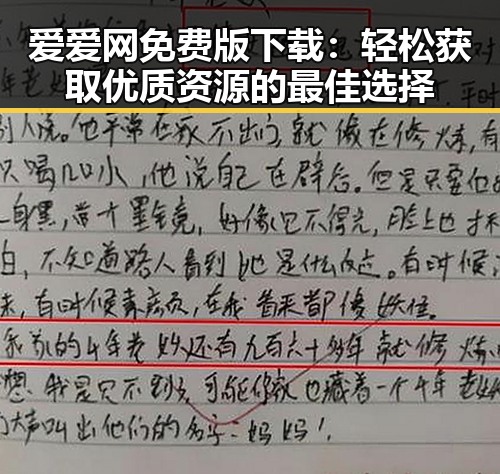 爱爱网免费版下载：轻松获
取优质资源的最佳选择
平时
别人说。他平常在家不出门,就像在修炼,有
只喝几口水,他说自己在辟谷。但是只要他
身黑,带个墨镜,好像见不得光,脸上也
白,不知道路人看到她是什么反应。有时候
来,有时候素颜,在我看来都像妖怪。
我家的千年老妖还有九百六十多年就修炼
想,我是只不到,可能你家也藏着一个千年老妖
大声叫出他们的名字:妈妈!